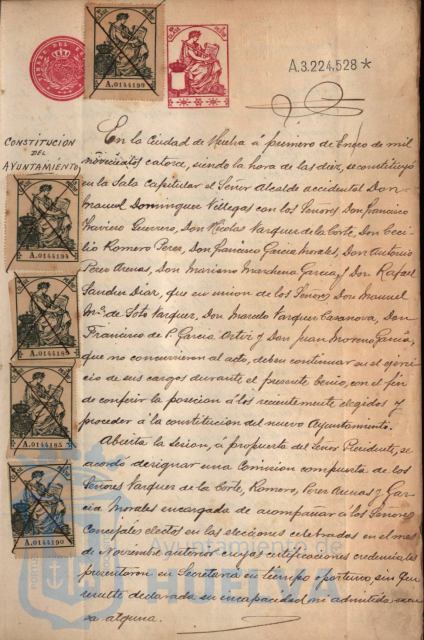 A.3.224.528*
A.0144199
CONSTITUCIÓN
DEL
AYUNTAMIENTO
A.0144194
A.0144185
A.0144190
En la Ciudad de Huelva á primero de Enero de mil
novecientos catorce, siendo la hora de las diez, se constituyó
en la Sala Capitular el Señor Alcalde accidental Don
Manuel Dominguez Villegas con los Señores Don Francisco
Guerrero, Don Nicolas Vazquez de la Corte, Don Ceci-
lio Romero Perez, Don Francisco Garcia Morales, Don Antonio
Perez Arenas, Don Mariano Marchena Garcia y Don Rafael
Sanchez Diaz, que en union de los Señores Don Manuel
Mª de Soto Vazquez, Don Marcelo Vazquez Casanova, Don
Francisco de P. Garcia Ortiz y Don Juan Moreno Garcia,
que no concurrieron al acto, deben continuar en el ejerci-
cio de sus cargos durante el presente bienio, con el fin
de conferir la posesion á los recientemente elegidos y
proceder á la constitucion del nuevo Ayuntamiento.
Abierta la sesion, á propuesta del Señor Presidente, se
acordó designar una Comision compuesta de los
Señores Vazquez de la Corte, Romero, Perez Arenas y Gar-
cia Morales encargada de acompañar á los Señores
Concejales electos en las elecciones celebradas en el mes
de Noviembre cuyas certificaciones credenciales
presentaron en Secretaria en tiempo oportuno, sin que
resulte declarada su incapacidad ni admitida excu-
sa alguna.
Ayuntamiento de
HUELVA